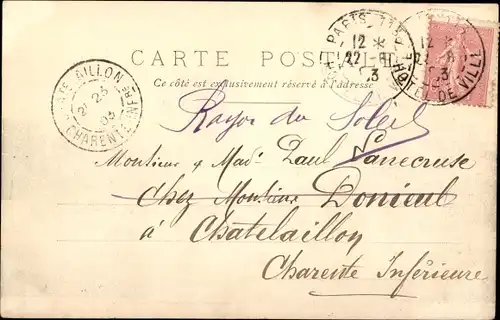 CARTE POSTALE
Ce côté est exclusivement réservé à l'adresse
PARIS
12 *
22
3
12
22 8
3
HOTEL DE VILLE
AILLON
2 23
03
CHARENTE INFRE
Rayon du Soleil
Monsieur & Made Paul Lanecruse
Chez Monsieur Donieul
à Chatelaillon
Charente Inférieure